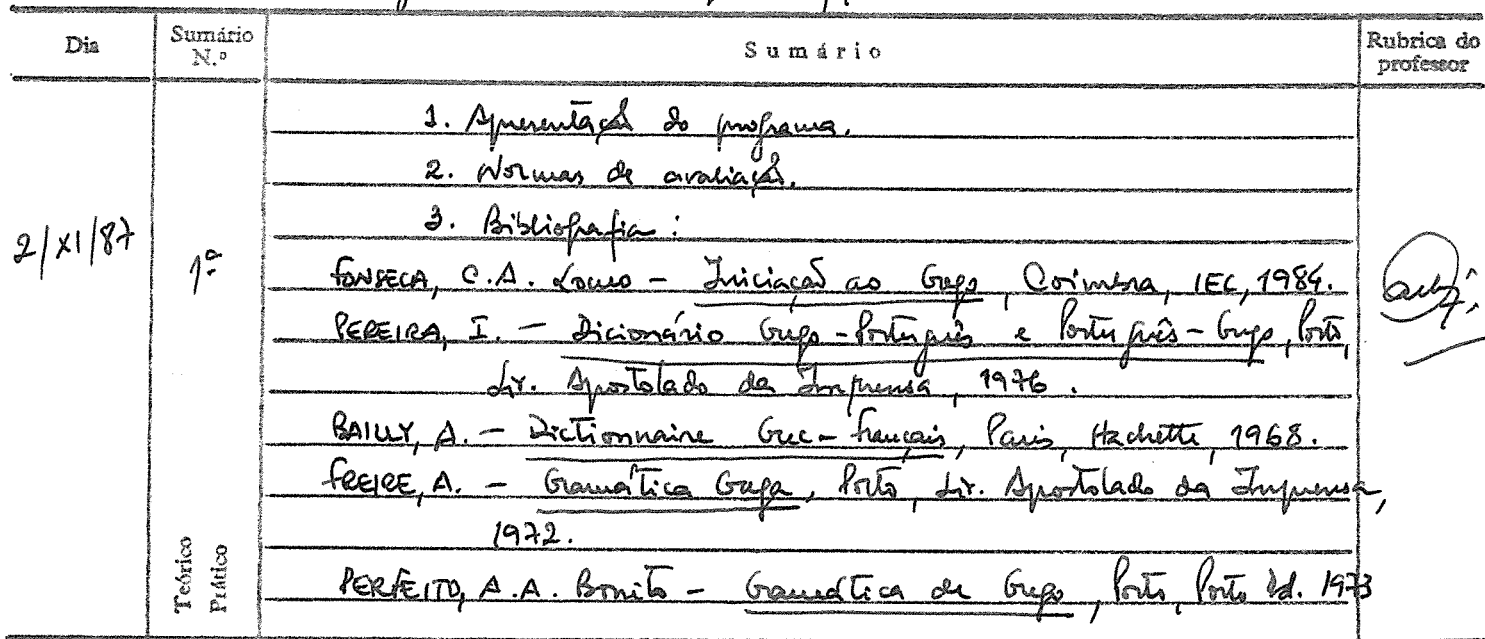 Dia
Sumário N.º
Sumário
Rubrica do professor
2/XI/87
1.º
Teórico
Prático
1. Apresentação do programa.
2. Normas de avaliação.
3. Bibliografia:
FONSECA, C.A. Louro - Iniciação ao Grego, Coimbra, IEC, 1984.
PEREIRA, I. - Dicionário Grego-Português e Português-Grego, Porto,
Liv. Apostolado da Imprensa, 1976.
BAILLY, A. - Dictionnaire Grec-français, Paris, Hachette, 1968.
FREIRE, A. - Gramática Grega, Porto, Liv. Apostolado da Imprensa,
1972.
PERFEITO, A.A. Bonito - Gramática de Grego, Porto, Porto Ed. 1973